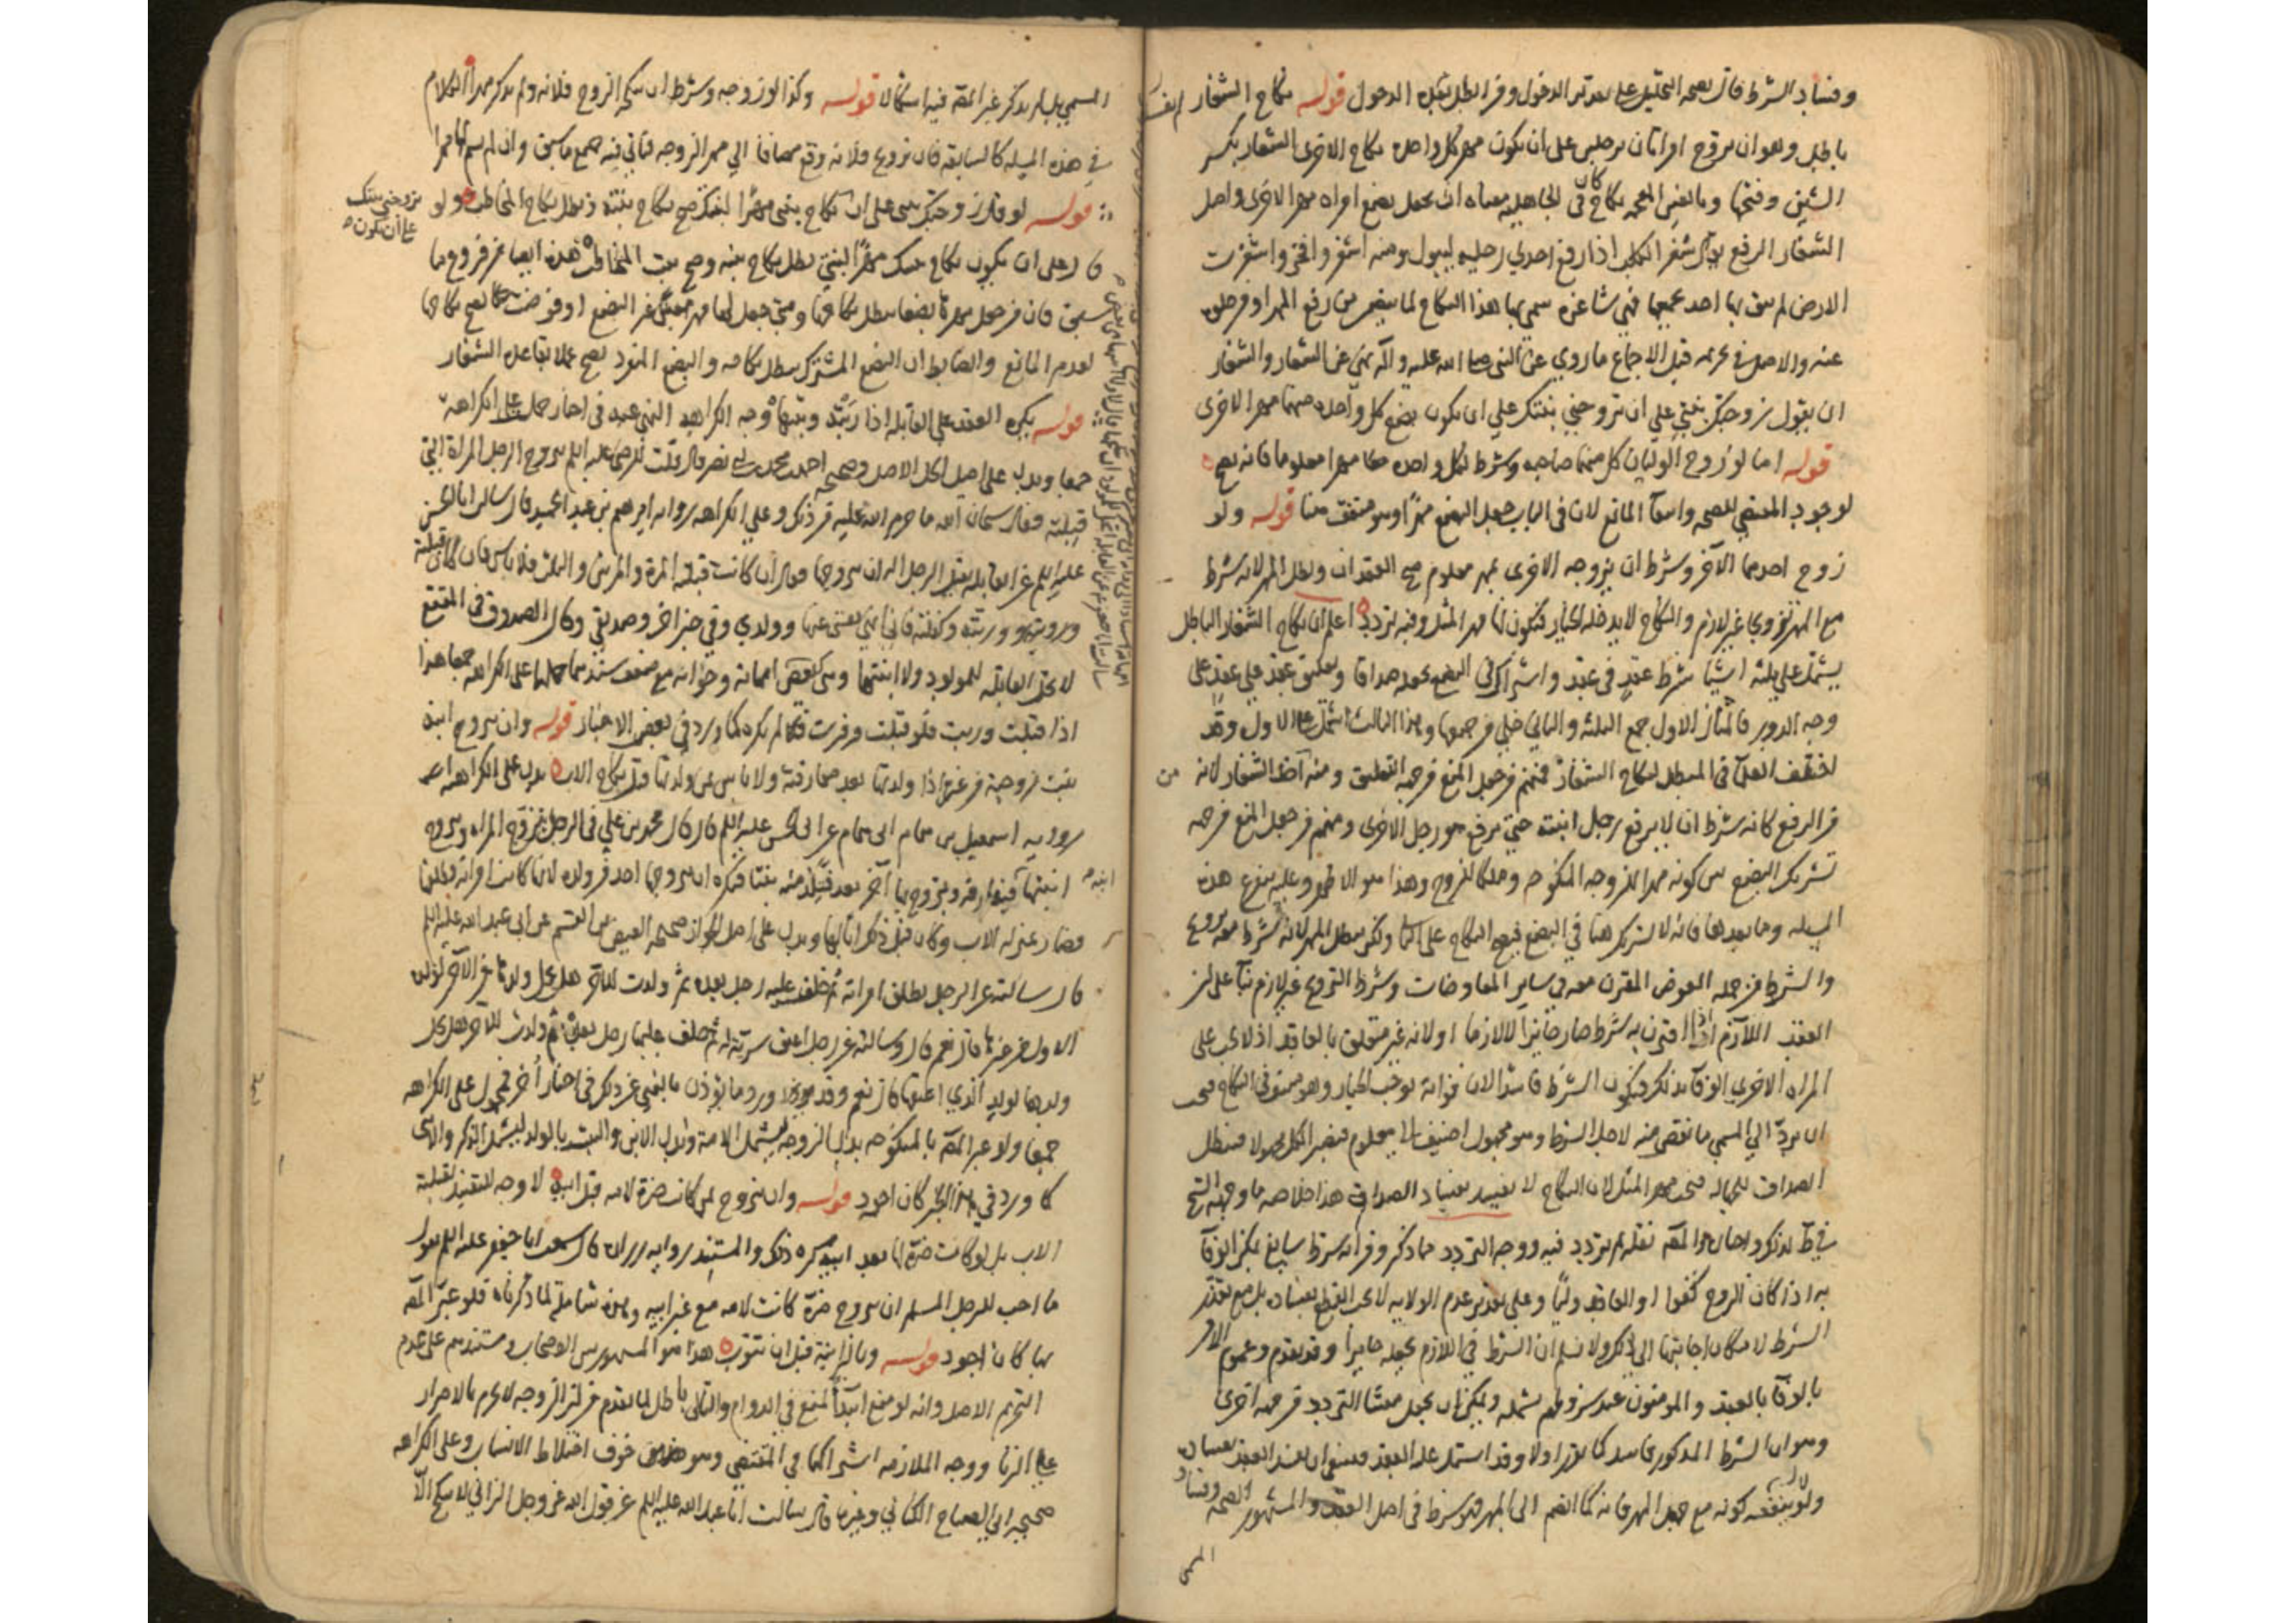 وفساد الشرط فان بصحه التحليل على تقدير الدخول وقد ابطل بقبل الدخول قوله نكاح الشغار
باطل وهو ان يتزوج امراتان برجلين على ان يكون مهر كل واحدة نكاح الاخرى الشغار بكسر
الشين وفتحها وبالغين المعجمه نكاح كان فى الجاهليه معناه ان يجعل بضع امراه مهر الاخرى واصل
الشغار الرفع يقال شغر الكلب اذا رفع احدى رجليه ليبول ومنه اشغر وافخر واشغرت
الارض لم يبق بها احد يحميها فهى شاغره سمى بها هذا النكاح لما يتضمن من رفع المهر او فرجلها
عنه والاصل فى تحريمه قبل الاجماع ما روي عن النبى صلى الله عليه وآله نهى عن الشغار والشغار
ان يقول زوجتك بنتى على ان تزوجني بنتك على ان يكون بضع كل واحدة منهما مهر الاخرى
قوله اما لو زوج الوليان كل منهما صاحبه وشرط لكل واحده مهرا معلوما فانه يصح
لوجود المقتضى للصحه وانتفآ المانع لان فى الباب جعل البضع مهرًا وهو منتف هنا قوله ولو
زوج احدهما الآخر وشرط ان يزوجه الاخرى بمهر معلوم صح العقدان وبطل المهر لانه شرط
مع المهر تزويجا غير لازم والنكاح لا يدخله الخيار فيكون لها مهر المثل وفيه تردد اعلم ان نكاح الشغار الباطل
يشتمل على ثلثه اشيآ شرط عقد فى عقد واشتراك فى البضع بجعله صداقا وتعليق عقد على عقد على
وجه الدور فالمثال الاول جمع الثلثه والثانى خلى من جميعها وهذا الثالث اشتمل على الاول وقد
اختلف العلمآ فى المبطل لنكاح الشغار فمنهم من جعل المنع من جهه التعليق ومنه اخذ الشغار لانه
من الرفع كانه شرط ان لا يرفع رجل ابنته حتى يرفع هو رجل الاخرى ومنهم من جعل المنع من جهه
تشريك البضع من كونه مهرا للزوجه المنكوحه وملكا للزوج وهذا هو الاظهر وعليه يتفرع هذه
المسئله وما بعدها فانه لا تشريك هنا فى البضع فيصح النكاح على كلها ولكن يبطل المهر لانه شرط معه تزويج
والشرط من جمله العوض المقترن معه فى ساير المعاوضات وشرط التزويج غير لازم بنآ على ان
العقد اللازم اذا اقترن به شرط صار جايزا لا لازما او لانه غير متعلق بالعاقد اذ لا يجب على
المراه الاخرى الوفآ بذلك فيكون الشرط فاسدا لان فواته يوجب الخيار وهو ممتنع فى النكاح فيجب
ان يردّ الي المسمي ما نقص منه لاجل الشرط وهو مجهول اضيف الى معلوم فيصير الكل مجهولا فيبطل
الصداق للجهاله فيجب مهر المثل لان النكاح لا يفسد بفساد الصداق هذا خلاصه ما وجهه الشيخ
في ط لذلك واحال المصَ نقله ثم تردد فيه ووجه التردد مما ذكر ومن انه شرط سايغ يمكن الوفآ
به اذا كان الزوج كفوا او العاقد وليًا وعلى تقدير عدم الولايه لا يجب القطع بفساده بل مع تعذر
الشرط لامكان اجابتها الى ذلك ولا نسلم ان الشرط في اللازم يجعله جايزا وقد تقدم وعموم الامر
بالوفآ بالعقد والمومنون عند شروطهم يشمله ويمكن ان يجعل منشا التردد من جهه اخرى
وهو ان الشرط المذكور فاسد كما تقرر اولا وقد اشتمل عليه العقد فينبغى ان يفسد العقد بفساده
ولا ينفعه كونه مع جعل المهر فانه كما انضم الى المهر فهو شرط فى اصل العقد والمشهور الصحه وفساد
المسمى
المسمى بل لم يذكر غير المصَ فيه اشكالا قوله وكذا لو زوجه وشرط ان ينكحه الزوج فلانه ولم يذكر مهرا الكلام
في هذه المسئله كالسابقه فان تزويج فلانه وقع مضافا الي مهر الزوجه فياتى فيه جميع ما سبق وان لم يسم لها مهرا
قوله لو قال زوجتك بنتى على ان نكاح بنتى مهرًا لبنتك صح نكاح بنته وبطل نكاح المخاطب ولو
قال على ان يكون نكاح بنتك مهرًا لبنتى بطل نكاح بنته وصح بنت المخاطب هذه ايضا من فروع ما
تزوجنى بنتك
على ان يكون
سبق فان من جعل مهرها بضعا يبطل نكاحها ومتى جعل لها مهر معين غير البضع او فوضت صح نكاحها
لعدم المانع والضابط ان البضع المشترك يبطل نكاحه والبضع المنفرد يصح عملا بقاعده الشغار
قوله يكره العقد على القابله اذا ربّته وبنتها وجه الكراهه النهى عنه فى اخبار حمل على الكراهه
جمعا ويدل على اصل الحل الاصل وصحيحه احمد بن محمد بن ابى نصر قال قلت للرضا عليه السلم يتزوج الرجل المراة التى
قبلته فقال سبحان الله ما حرم الله عليه من ذلك وعلى الكراهه روايه ابرهيم بن عبد الحميد قال سالت ابا الحسن
عليه السلم عن القابله تقبل الرجل اله ان يتزوجها فقال ان كانت قبلته المرة والمرتين والثلث فلا باس فان كانت قبلته
وربته وكفلته فاني انهى نفسى عنها وولدى وفى خبر اخر وصديقى وقال الصدوق فى المقنع
لا تحل القابله للمولود ولا ابنتها وهى كبعض امهاته وجوابه مع ضعف سندهما حملها على الكراهه جمعا هذا
اذا قبلت وربت فلو قبلت ومرت فلم يكره كما ورد فى بعض الاخبار قوله وان يزوج ابنه
بنت زوجته من غيره اذا ولدتها بعد مفارقته ولا باس بمن ولدتها قبل نكاح الاب يدل على الكراهه
روايه اسمعيل بن همام عن ابى الحسن عليه السلم قال قال محمد بن على فى الرجل يتزوج المراه ويزوج
ابنتها ابنه فيفارقه ويتزوج بها آخر بعد فتلد منه بنتا فكره ان يتزوجها احد من ولده لانها كانت امراته فطلقها
فصار بمنزله الاب وكان قبل ذلك ابا لها ويدل على اصل الجواز صحيحه العيص بن القسم عن ابى عبد الله عليه السلم
قال سالته عن الرجل يطلق امراته ثم خلف عليها رجل بعده ثم ولدت للآخر هل يحل ولدها من الآخر لولد
الاول من غيرها قال نعم قال وسالته عن رجل اعتق سرية له ثم خلف عليها رجل بعده ثم ولدت للآخر هل يحل
ولدها لولد الذي اعتقها قال نعم وقد ورد ما يوذن بالنهى عن ذلك فى اخبار اُخر فحمل على الكراهه
جمعا ولو عبر المصَ بالمنكوحه بدل الزوجه ليشمل الامه وبدل الابن والبنت بالولد ليشمل الذكر والانثى
كما ورد في الخبر كان اجود قوله وان يتزوج بمن كانت ضرة لامه قبل ابيه لا وجه للتقييد بقبليه
الاب بل لو كانت ضرة لها بعد ابيه كره ذلك والمستند روايه زراره قال سمعت ابا جعفر عليه السلم يقول
ما احب للرجل المسلم ان يتزوج ضرة كانت لامه مع غير ابيه وهى شامله لما ذكرناه فلو عبّر المصَ
بها كان اجود قوله وبالزانية قبل ان تتوب هذا هو المشهور بين الاصحاب ومستندهم على عدم
التحريم الاصل وانه لو منع ابتدآ لمنع في الدوام والتالى باطل لما تقدم من ان الزوجه لا تحرم بالاصرار
على الزنا ووجه الملازمه اشتراكهما فى المقتضى وهو خوف اختلاط الانساب وعلى الكراهه
صحيحه ابى الصباح الكنانى وغيره قال سالت ابا عبد الله عليه السلم عن قول الله عز وجل الزانى لا ينكح الا